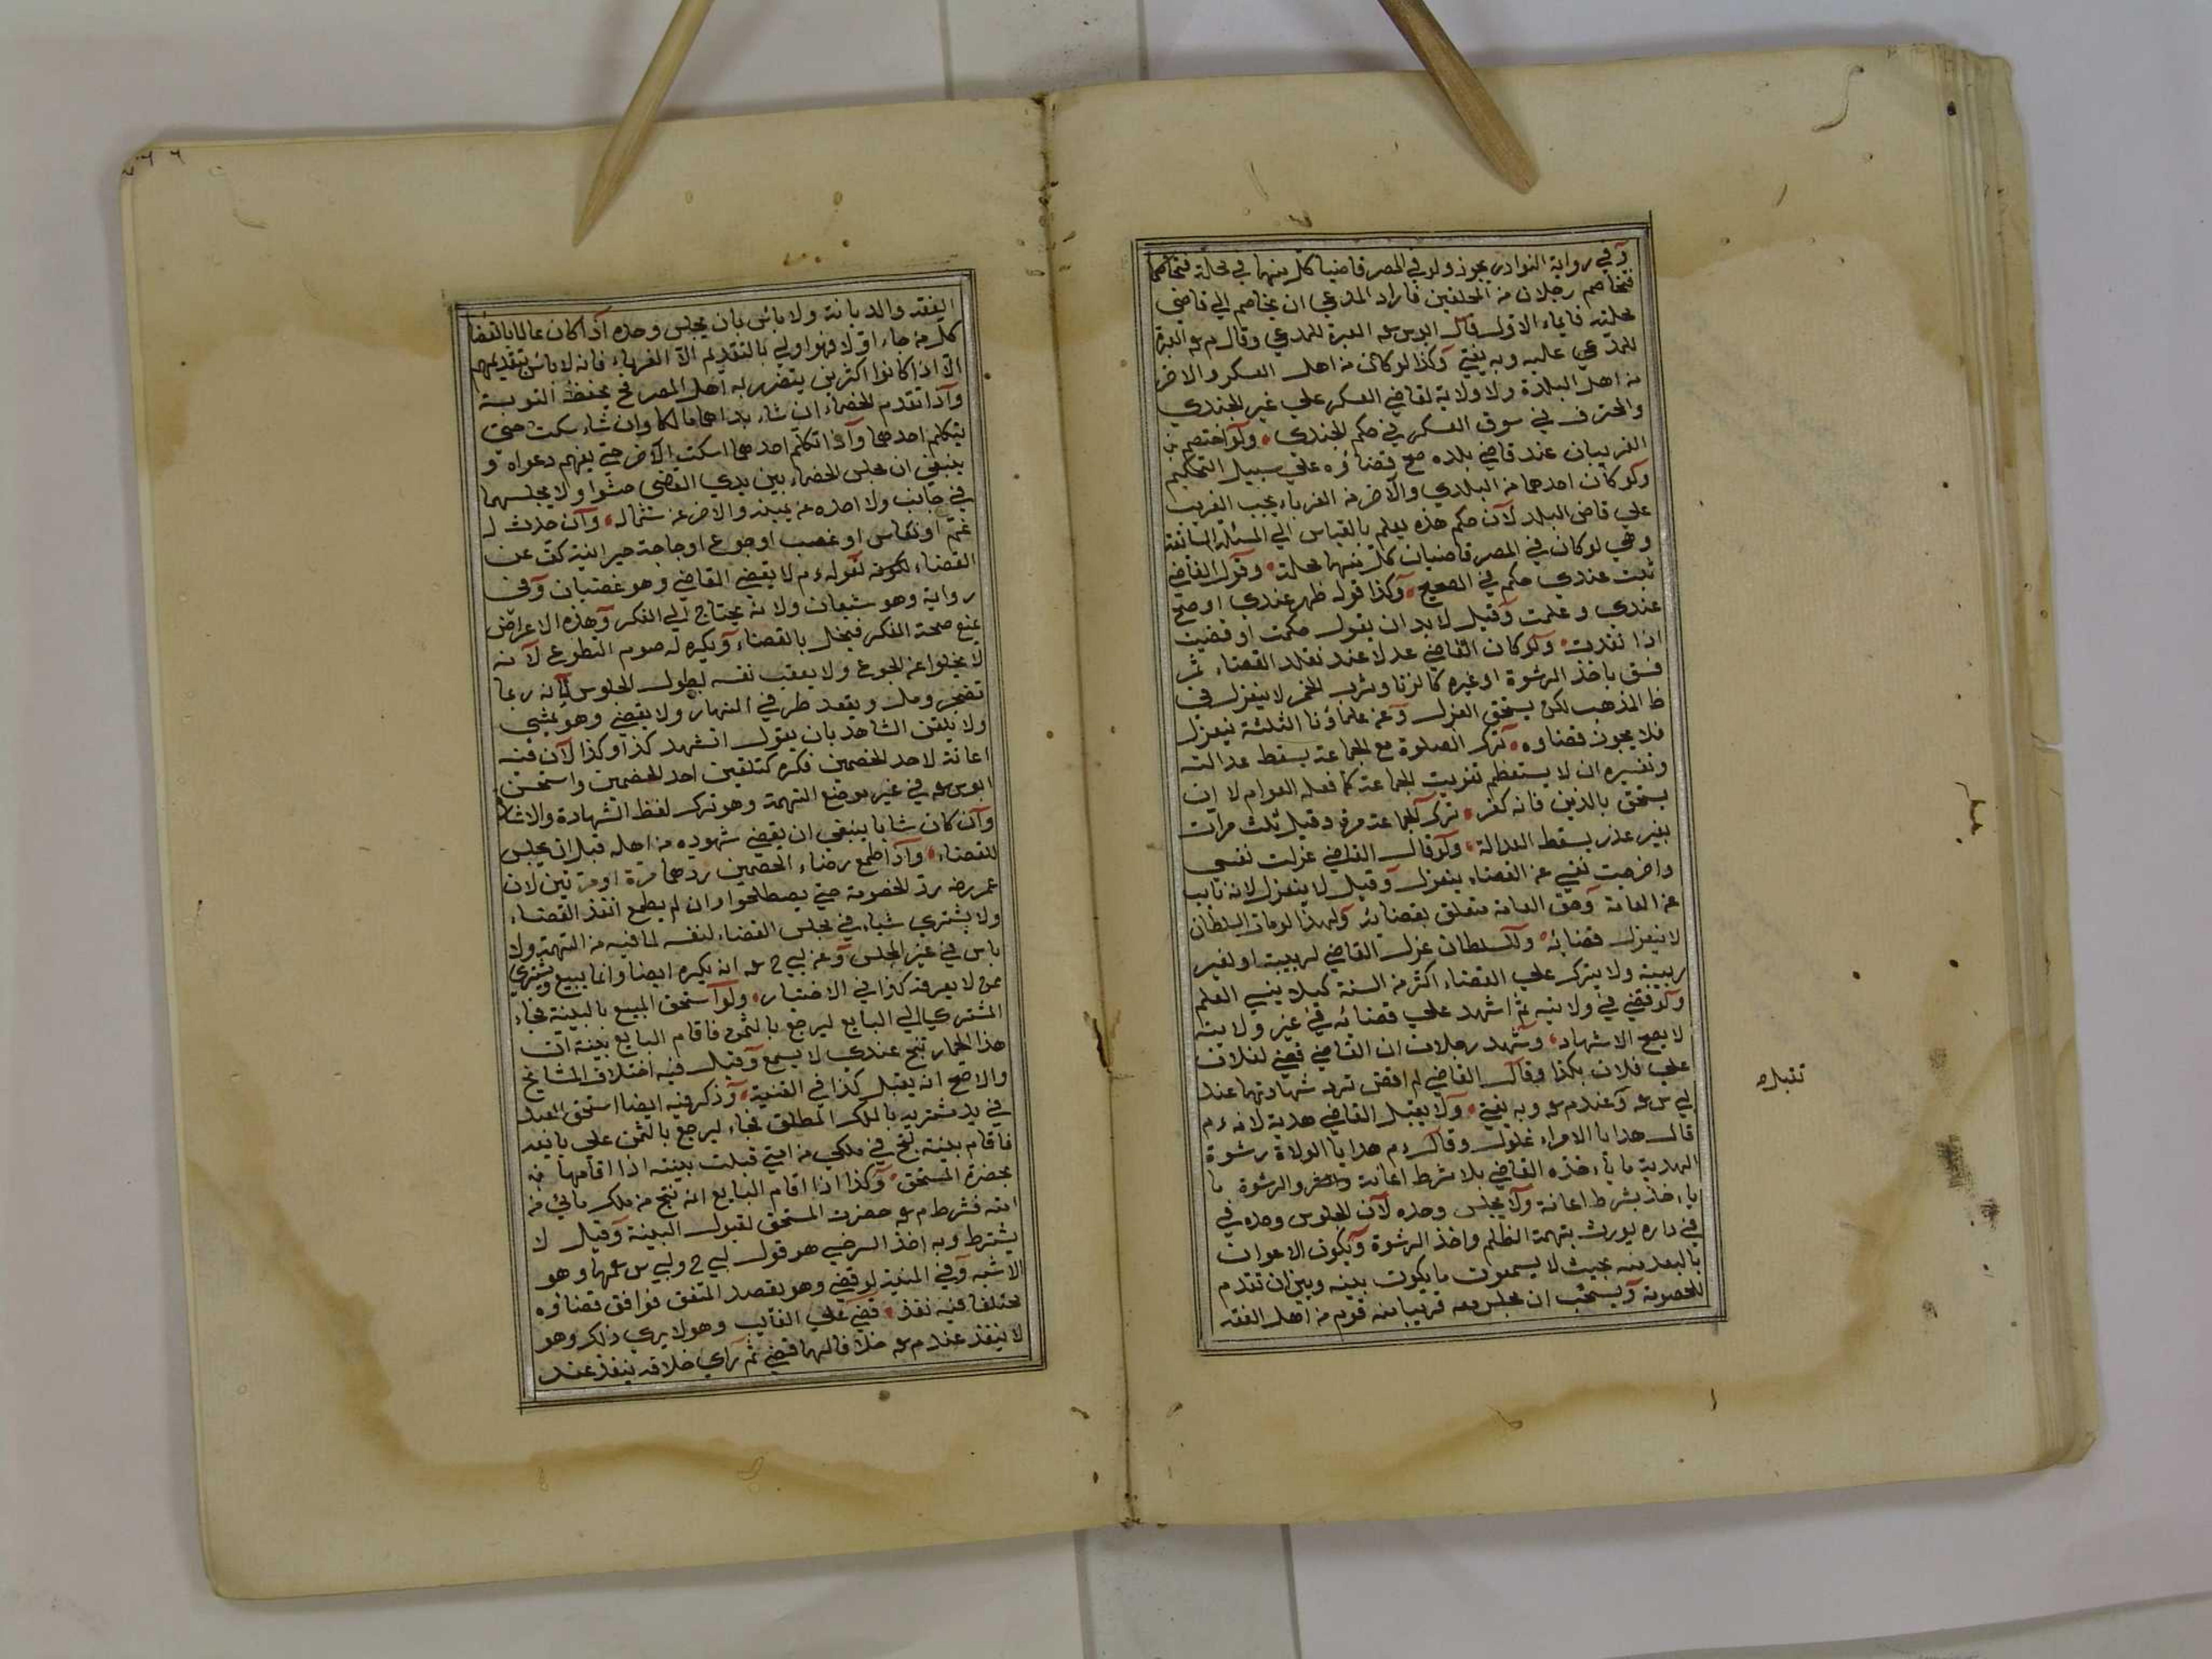 وفي رواية النوادر يجوز ولو في المصر قاضيا كل منهما في محلة
فتخاصم رجلان من المحلتين فاراد المدعي ان يخاصم الي قاضي
محلته فاباء الاول قال ابو س عه العبرة للمدعي وقال م عه العبرة
للمدعي عليه وبه يفتي وكذا لو كان من اهل العسكر والاخر
من اهل البلدة ولا ولاية لقاضي العسكر علي غير الجندي
والمحترف في سوق العسكر في حكم الجندي ولو اختصم
الغريبان عند قاضي بلده صح قضاؤه علي سبيل التحكيم
ولو كان احدهما من البلدي والآخر من الغرباء يجب الغريب
علي قاضي البلد لان حكم هذه يعلم بالقياس الي المسئلة السابقة
وهي لو كان في المصر قاضيان كل منهما محلة وقول القاضي
ثبت عندي حكم في الصحيح وكذا قوله ظهر عندي او صح
عندي وعلمت وقيل لابد ان يقول حكمت او قضيت
اذا نفدت ولو كان القاضي عدلا عند تقلد القضاء ثم
فسق باخذ الرشوة او غيره كالزنا وشرب الخمر لا ينعزل في
ظ المذهب لكن يستحق العزل وعن علماؤنا الثلثة ينعزل
فلا يجوز قضاوه ترك الصلوة مع الجماعة يسقط عدالته
وتفسيره ان لا يستعظم تفويت الجماعة كما فعله العوام لا ان
يستحق بالدين فانه كفر ترك الجماعة مرة وقيل ثلث مرات
بغير عذر يسقط العدالة ولو قال القاضي عزلت نفسي
واخرجت نفسي عن القضاء ينعزل وقيل لا ينعزل لانه نايب
عن العامة وحق العامة متعلق بقضائه ولهذا لو مات السلطان
لا ينعزل قضائه وللسلطان عزل القاضي لريبته او لغير
ريبة ولا يترك علي القضاء اكثر من السنة كيلا ينسي العلم
ولو قضي في ولايته ثم اشهد علي قضائه في غير ولايته
لا يصح الاشهاد وشهد رجلان ان القاضي قضي لفلان
علي فلان بكذا وقال القاضي لم اقض ترد شهادتهما عند
ابي س عه وعند م عه وبه يفتي ولا يقبل القاضي هدية لانه ءم
قال هدايا الامراء غلول وقال ءم هدايا الولاة رشوة
الهدية ما يأخذه القاضي بلا شرط اعانة والرشوة ما
يأخذ بشرط اعانة ولا يجلس وحده لان الجلوس وحده في
في داره يورث بتهمة الظلم واخذ الرشوة ويكون الاعوان
بالبعد منه بحيث لا يسمعون ما يكون بينه وبين ان تقدم
للخصومة ويستحب ان يجلس معه قريبا منه قوم من اهل الفقه
تقبل
الفقه والديانة ولا بائس بان يجلس وحده اذا كان عالما بالقضا
كل من جاء اولا فهو اولي بالتقديم الا الغرباء فانه لا بائس بتقديمهم
الا اذا كانوا اكثرين يتضرر به اهل المصر فح يحفظ النوبة
واذا تقدم الخصماء ان شاء بداهما مالكما وان شاء سكت حتي
يتكلم احدهما واذا تكلم احدهما اسكت الآخر حتي يفهم دعواه و
ينبغي ان يجلس الخصماء بين يدي القضي جثوا ولا يجلسهما
في جانب ولا احده عن يمينه والاخر عن شماله وان حدث له
غم او نعاس او غضب او جوع او حاجة حيوانية كف عن
القضاء لكونه لقوله ءم لا يقضي القاضي وهو غضبان وفي
رواية وهو شبعان ولانه يحتاج الي الفكر وهذه الاعراض
يمنع صحة الفكر فيخل بالقضاء ويكره له صوم التطوع لانه
لا يخلوا عن الجوع ولا يعقب نفسه بطول الجلوس لانه ربما
تضجر ومل ويقعد طرفي النهار ولا يقضي وهو يمشي
ولا يلقن الشاهد بان يقول اتشهد كذا وكذا لان فيه
اعانة لاحد الخصمين فكره كتلقين احد الخصمين واستحسن
ابو س عه في غير موضع التهمة وهو ترك لفظ الشهادة والاشا
وان كان شابا ينبغي ان يقضي شهوده من اهله قبل ان يجلس
للقضاء واذا طمع رضاء الخصمين ردهما مرة او مرتين لان
عمر رضه رد الخصومة حتي يصطلحوا وان لم يطمع انفذ القضاء
ولا يشتري شياء في مجلس القضاء لنفسه لما فيه من التهمة ولا
باس في غير المجلس وعن ابي ح عه انه يكره ايضا وانما يبيع ويشتري
ممن لا يعرفه كذا في الاختيار ولو استحق المبيع بالبينة فجاء
المشتري الي البايع ليرجع بالثمن فاقام البايع بينة ان
هذا الحمار نتج عندي لا يسمع وقيل فيه اختلاف المشايخ
والاصح انه يقبل كذا في القنية وذكر فيه ايضا استحق العبد
في يد مشتريه بالملك المطلق فجاء ليرجع بالثمن علي بايعه
فاقام بينة نتج في ملكي من امتي قبلت بينته اذا اقامها
بحضرة المستحق وكذا اذا اقام البايع انه نتج من ملك بائعي من
امته فشرط م عه حضرت المستحق لقبول البينة وقيل لا
يشترط وبه اخذ السرخسي هو قول ابي ح وابي س عنهما وهو
الاشبه وفي المنية لو قضي وهو يقصد المتفق فوافق قضاؤه
مختلفا فيه نفذ قضي علي الغايب وهو لا يري ذلك وهو
لا ينفذ عند م عه خلافا لهما قضي ثم رأي خلافه ينفذ عند